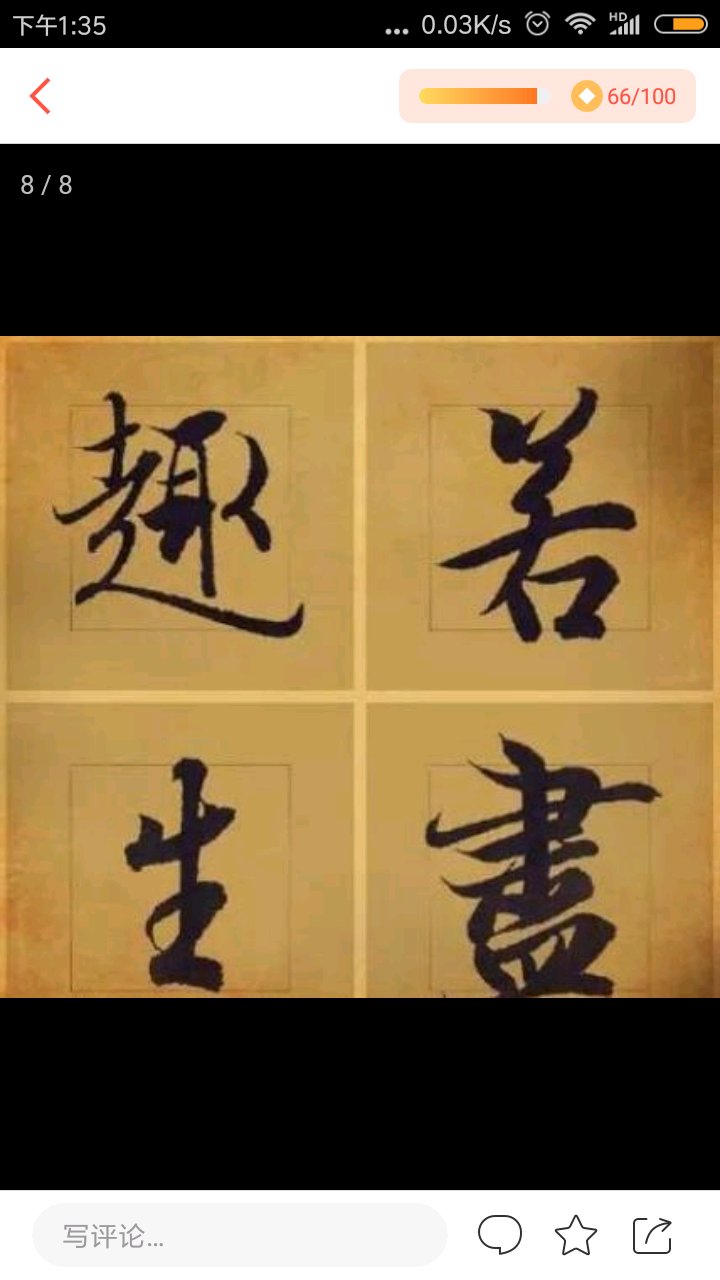 下午1:35
... 0.03K/s HD
66/100
8 / 8
趣 若
生 盡
写评论...